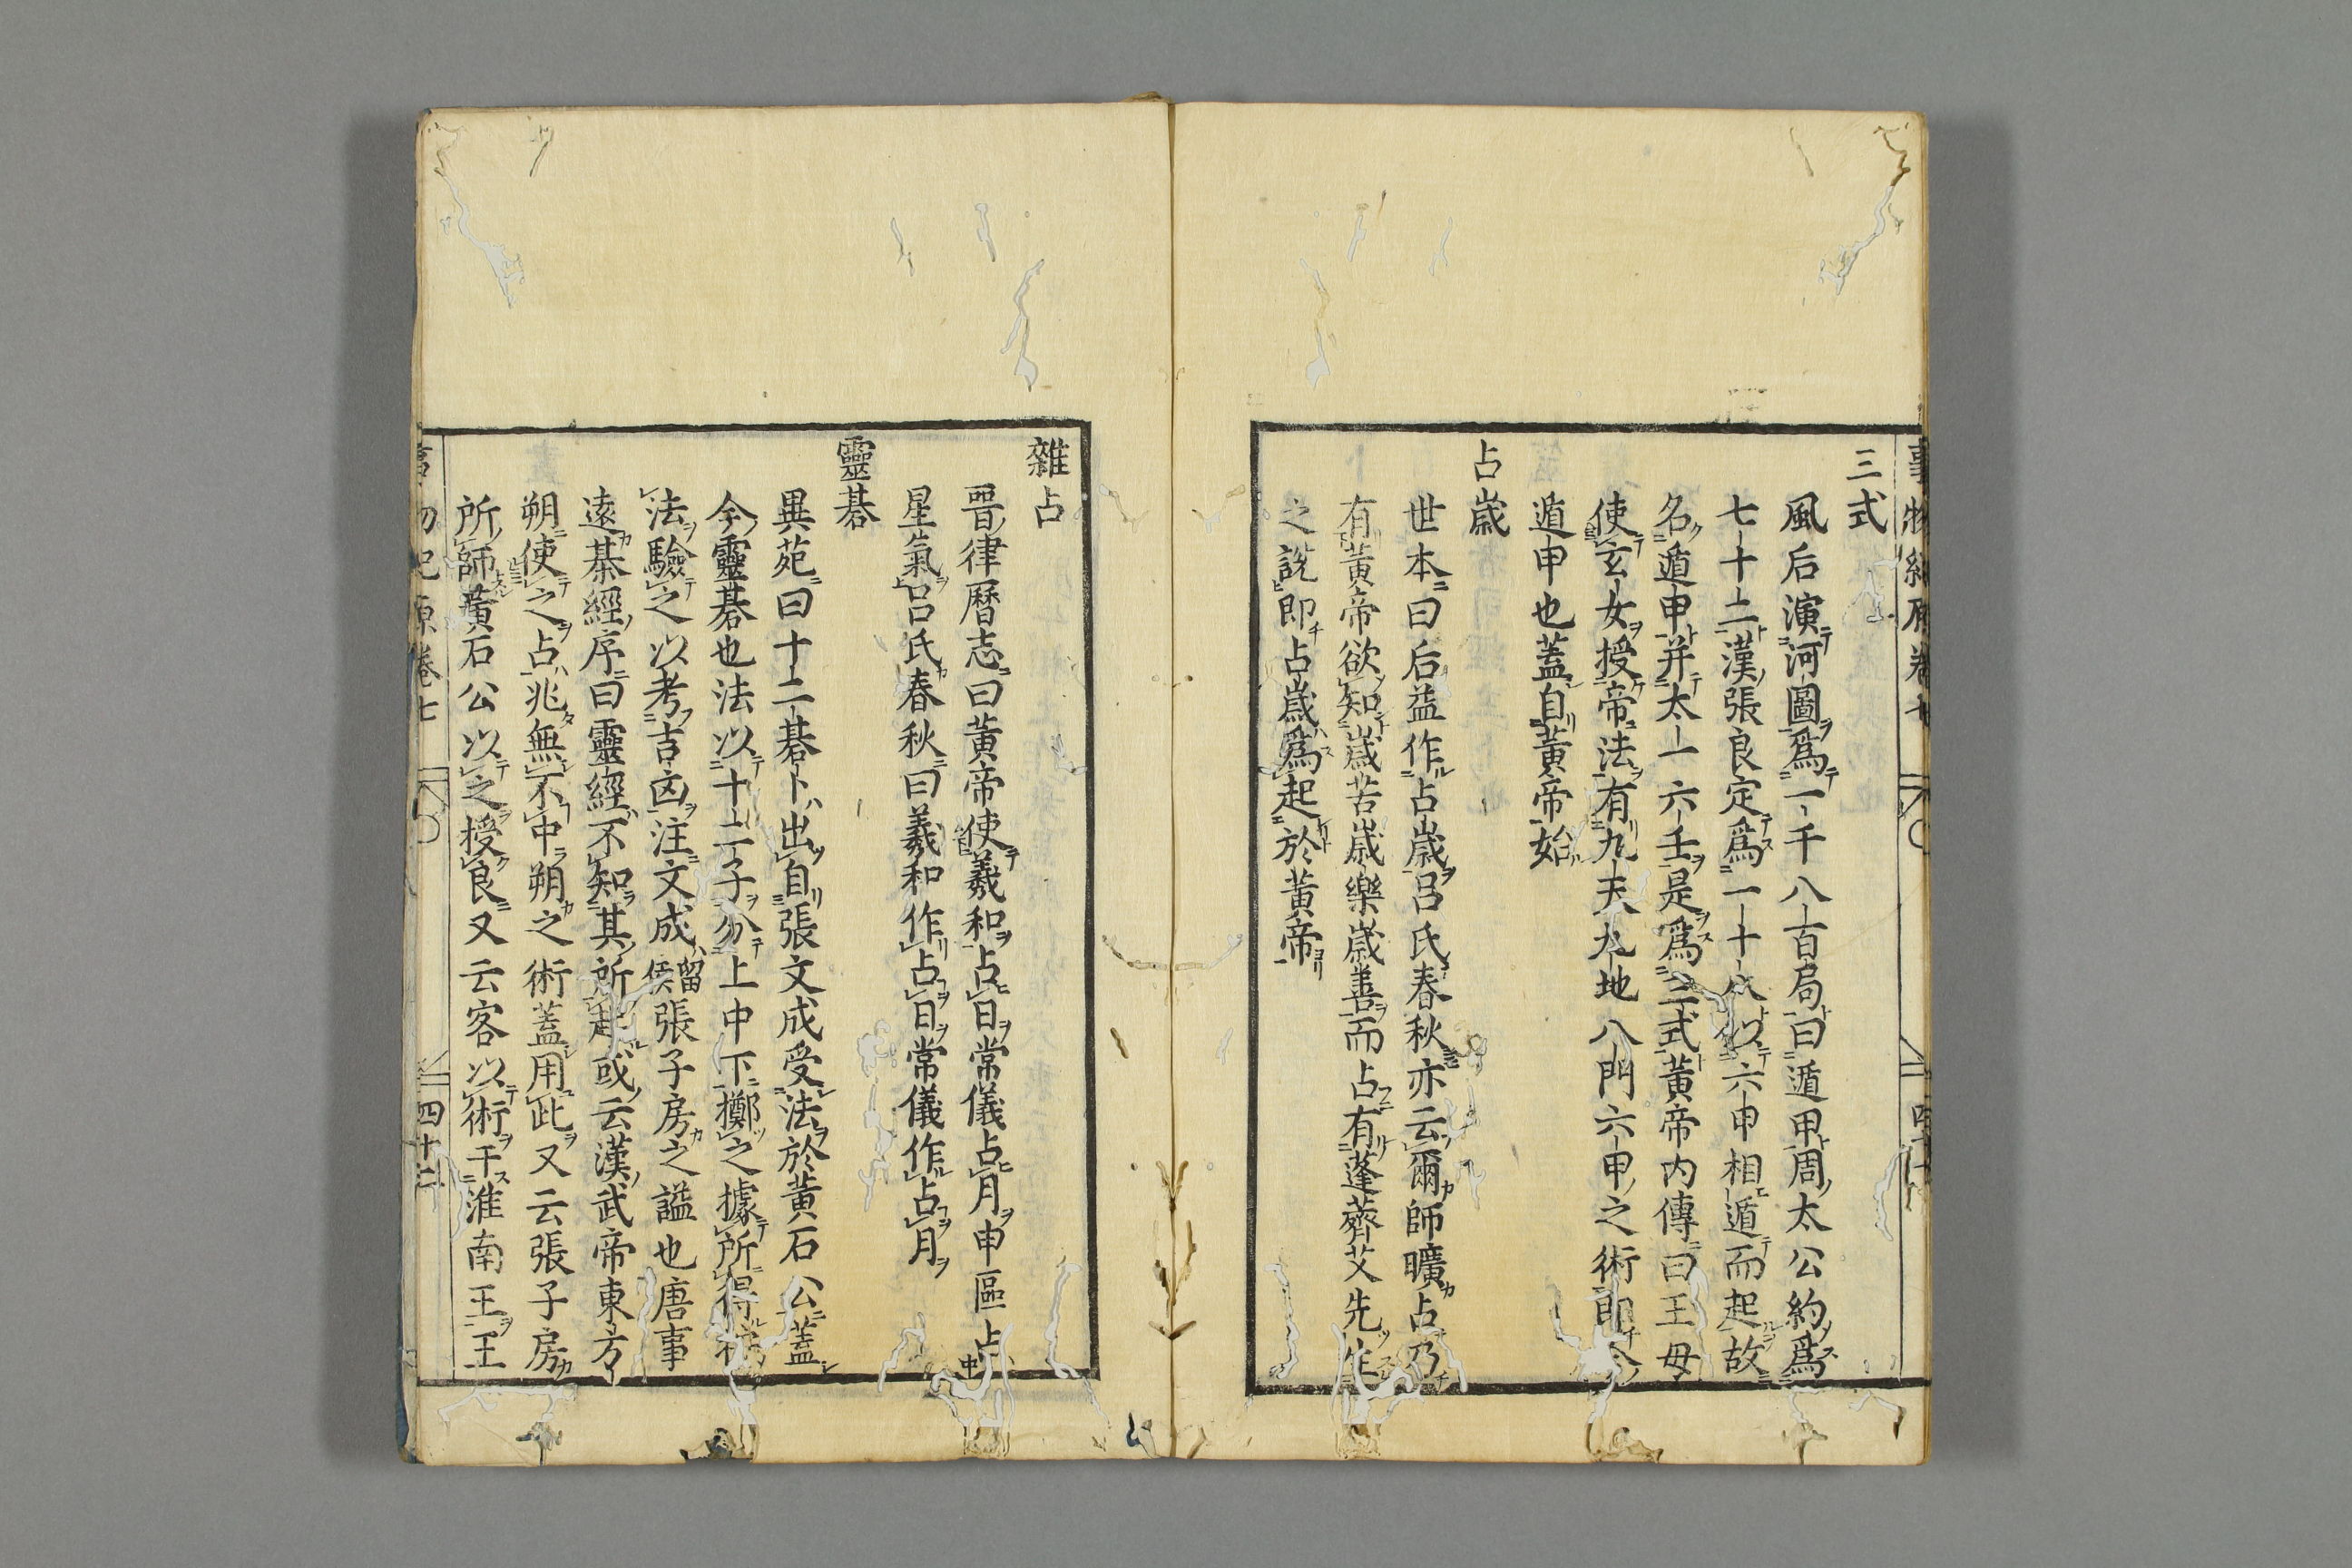 三式
風后演河圖爲一千八百局曰遁甲周太公約爲
七十二漢張良定爲一十八以六甲相遁而起故
名遁甲并太一六壬是爲三式黃帝內傳曰王母
使玄女授帝法有九天九地八門六甲之術即今
遁甲也蓋自黃帝始
占歲
世本曰后益作占歲呂氏春秋亦云爾師曠占乃
有黃帝欲知歲苦歲樂歲善而占有蓬薺艾先生
之說即占歲爲起於黃帝
雜占
晉律曆志曰黃帝使羲和占日常儀占月申區占
星氣呂氏春秋曰羲和作占日常儀作占月
靈棊
異苑曰十二棊卜出自張文成受法於黃石公蓋
今靈棊也法以十二子分上中下擲之據所得
法驗之以考吉凶注文成留侯張子房之謚也唐事
遠棊經序曰靈經不知其所起或云漢武帝東方
朔使之占兆無不中朔之術蓋用此又云張子房
所師黃石公以之授良又云客以術干淮南王王
事物紀原卷七 四十二